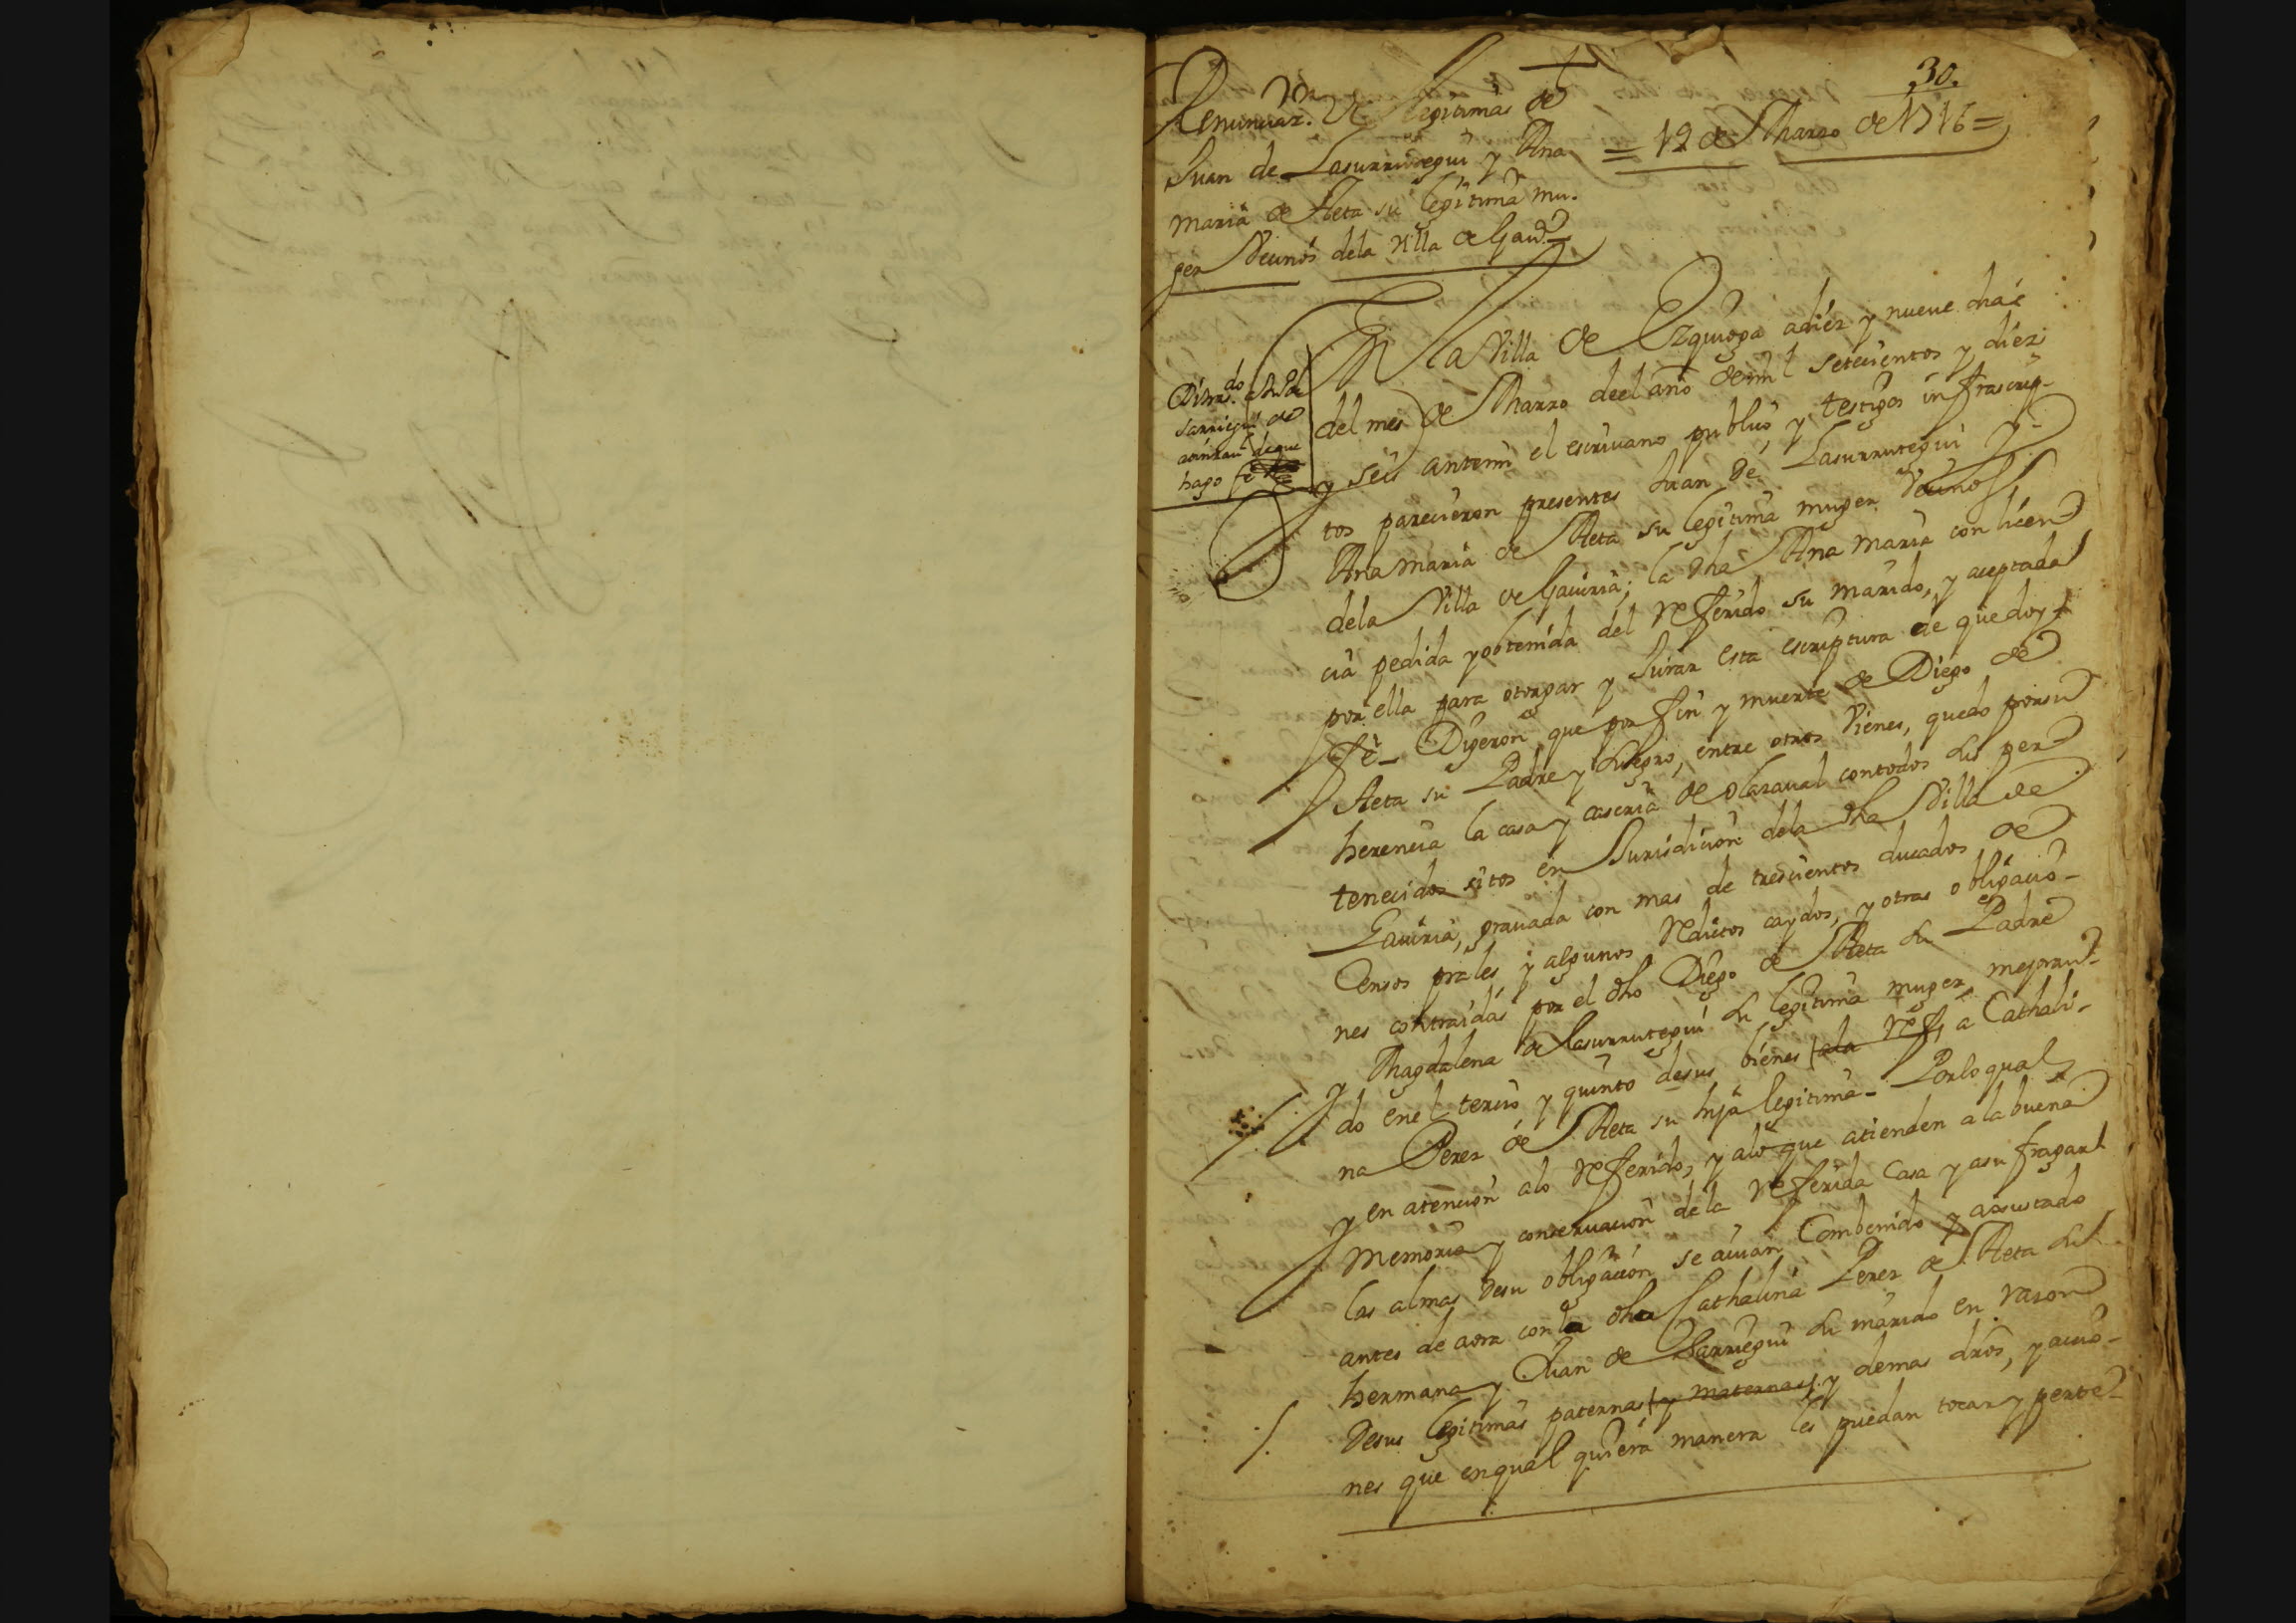 30.
Renunciaz.on de legitimas de
Juan de Lasurrutegui y Ana
maria de Aeta su legitima mu-
ger Vecinos dela Villa de Gav.a
= 19 de Marzo de 1716 =
En la Villa de Ezquioga adiez y nueve dias
del mes de Marzo deel año de mil setecientos y diez
y seis antemi el escriuano publico y testigos infrascrip-
tos parecieron presentes Juan de Lasurrutegui y
Ana maria de Aeta su legitima muger Vecinos
dela Villa de Gauiria; la dha Ana maria con licen
cia pedida y obtenida del referido su marido, y aceptada
por ella para otorgar y Jurar esta escriptura de que doy
fè _ Dijeron que por fin y muerte de Diego de
Aeta su Padre y suegro, entre otros Vienes, quedo porsu
herencia la casa y caseria de olaraual contodos sus per
tenecidos sitos en Jurisdicion dela dha Villa de
Gauiria, grauada con mas de trescientos ducados de
Censos prales y algunos reditos caydos, y otras obligacio-
nes contraidas por el dho Diego de Aeta su Padre
y Magdalena de Lasurrutegui su legitima muger, mejoran-
do enel tercio y quinto desus bienes ala ref, a Cathali-
na Perez de Aeta su hija legitima - Porloqual
y en atencion alo referido, y alo que atienden ala buena
memoria y conseruacion dela referida Casa y asu fragar
las almas desu obligacion se auian Combenido y ajustado
antes de aora con la dha Cathalina Perez de Aeta su
hermana y Juan de Sarriegui su marido en razon
desus legitimas paternas y maternas y demas dros, y accio-
nes que enqual quiera manera les puedan tocar y perte-
Di tras.do
Sarriegui de
hago fè